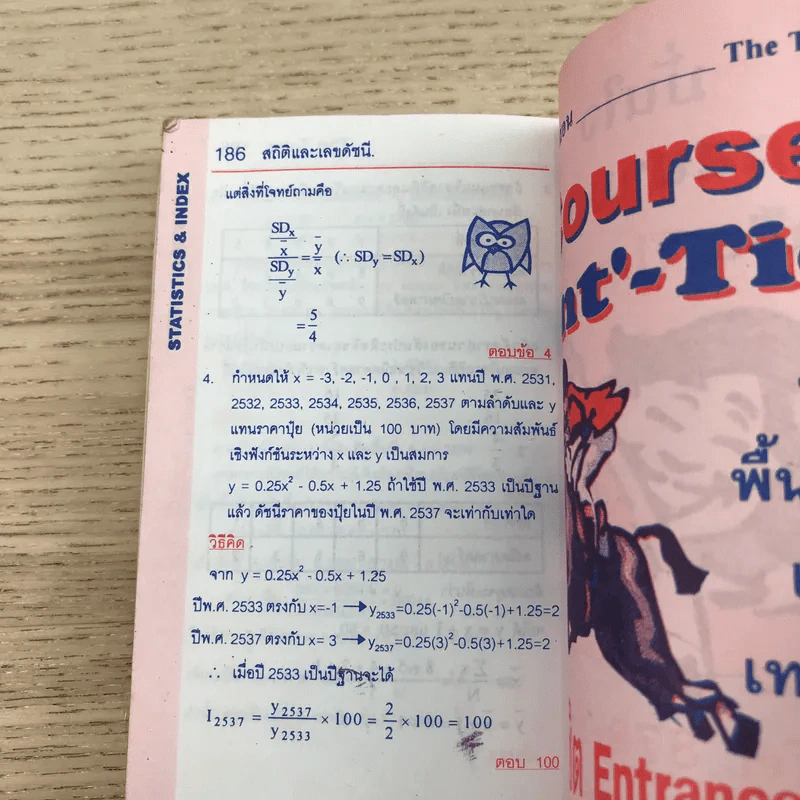 186 สถิติและเลขดัชนี.
STATISTICS & INDEX
แต่สิ่งที่โจทย์ถามคือ
SDx
x̄
SDy
ȳ
= ȳ/x̄ (∴ SDy = SDx)
= 5/4
ตอบข้อ 4
4. กำหนดให้ x = -3, -2, -1, 0 , 1, 2, 3 แทนปี พ.ศ. 2531,
2532, 2533, 2534, 2535, 2536, 2537 ตามลำดับและ y
แทนราคาปุ๋ย (หน่วยเป็น 100 บาท) โดยมีความสัมพันธ์
เชิงฟังก์ชันระหว่าง x และ y เป็นสมการ
y = 0.25x² - 0.5x + 1.25 ถ้าใช้ปี พ.ศ. 2533 เป็นปีฐาน
แล้ว ดัชนีราคาของปุ๋ยในปี พ.ศ. 2537 จะเท่ากับเท่าใด
วิธีคิด
จาก y = 0.25x² - 0.5x + 1.25
ปีพ.ศ. 2533 ตรงกับ x=-1 → y2533=0.25(-1)²-0.5(-1)+1.25=2
ปีพ.ศ. 2537 ตรงกับ x= 3 → y2537=0.25(3)²-0.5(3)+1.25=2
∴ เมื่อปี 2533 เป็นปีฐานจะได้
I2537 = y2537/y2533 × 100 = 2/2 × 100 = 100
ตอบ 100
The
ourse
nt'-Ti
พื้น
เท
Entrance